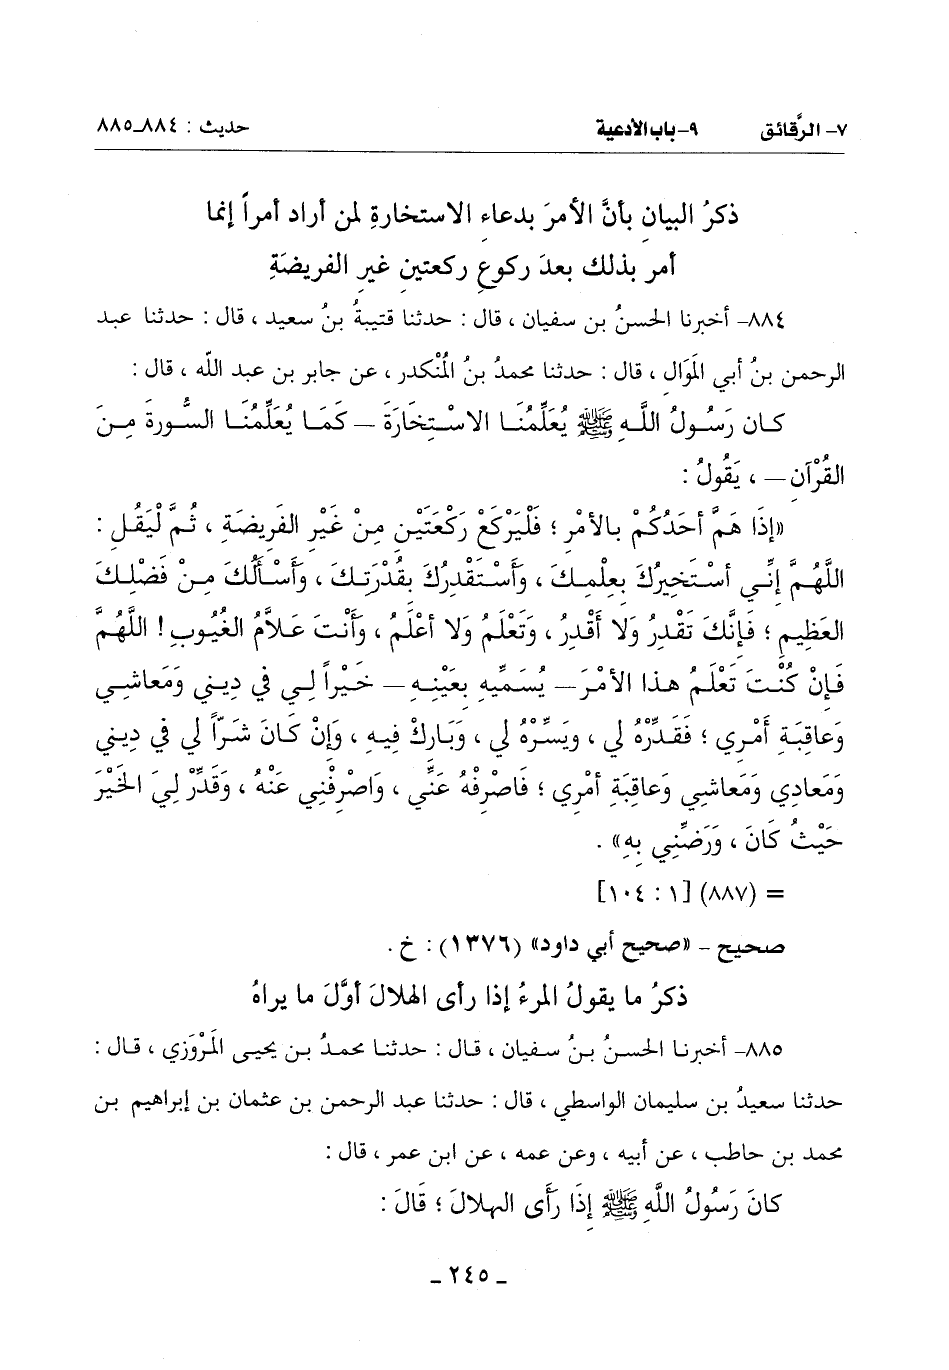 ٧- الرَّقائق ٩- باب الأدعية حديث : ٨٨٤ـ٨٨٥
ذكرُ البيان بأنَّ الأمرَ بدعاء الاستخارةِ لمن أراد أمراً إنما
أمر بذلك بعدَ ركوعِ ركعتينِ غيرِ الفريضَةِ
٨٨٤- أخبرنا الحسنُ بن سفيان ، قال : حدثنا قتيبةُ بنُ سعيد ، قال : حدثنا عبد
الرحمن بنُ أبي المَوَال ، قال : حدثنا محمدُ بنُ المُنْكدر ، عن جابر بن عبد الله ، قال :
كان رَسُولُ اللَّهِ ﷺ يُعَلِّمُنَا الاسْتِخَارَةَ – كَمَا يُعَلِّمُنَا السُّورةَ مِنَ
القُرْآنِ – ، يَقُولُ :
«إذَا هَمَّ أحَدُكُمْ بالأمْرِ ؛ فَلْيَرْكَعْ رَكْعَتَيْنِ مِنْ غَيْرِ الفَريضَةِ ، ثُمَّ لْيَقُلِ :
اللَّهُمَّ إنِّي أسْتَخيرُكَ بعِلْمِكَ ، وَأسْتَقْدِرُكَ بِقُدْرَتِكَ ، وَأسْألُكَ مِنْ فَضْلِكَ
العَظِيمِ ؛ فَإنَّكَ تَقْدِرُ وَلا أقْدِرُ ، وَتَعْلَمُ وَلا أعْلَمُ ، وَأنْتَ عَلاَّمُ الغُيُوبِ! اللَّهُمَّ
فَإنْ كُنْتَ تَعْلَمُ هذا الأمْرَ – يُسَمِّيهِ بِعَيْنِهِ – خَيْراً لِي في دِيني وَمَعاشي
وَعاقِبَةِ أمْري ؛ فَقَدِّرْهُ لي ، ويَسِّرْهُ لي ، وَبَارِكْ فيهِ ، وَإنْ كَانَ شَرّاً لي في دِيني
وَمَعادِي وَمَعاشي وَعاقِبَةِ أمْري ؛ فَاصْرِفْهُ عَنِّي ، وَاصْرِفْني عَنْهُ ، وَقَدِّرْ لِيَ الخَيْرَ
حَيْثُ كَانَ ، وَرَضِّنِي بِهِ» .
= (٨٨٧) [١ : ١٠٤]
صحيح – «صحيح أبي داود» (١٣٧٦) : خ .
ذكرُ ما يقولُ المرءُ إذا رأى الهلالَ أوَّلَ ما يراهُ
٨٨٥- أخبرنا الحسنُ بنُ سفيان ، قال : حدثنا محمدُ بن يحيى المَرْوَزي ، قال :
حدثنا سعيدُ بن سليمان الواسطي ، قال : حدثنا عبد الرحمن بن عثمان بن إبراهيم بن
محمد بن حاطب ، عن أبيه ، وعن عمه ، عن ابن عمر ، قال :
كانَ رَسُولُ اللَّهِ ﷺ إذَا رَأَى الهلالَ ؛ قَالَ :
ـ ٢٤٥ ـ